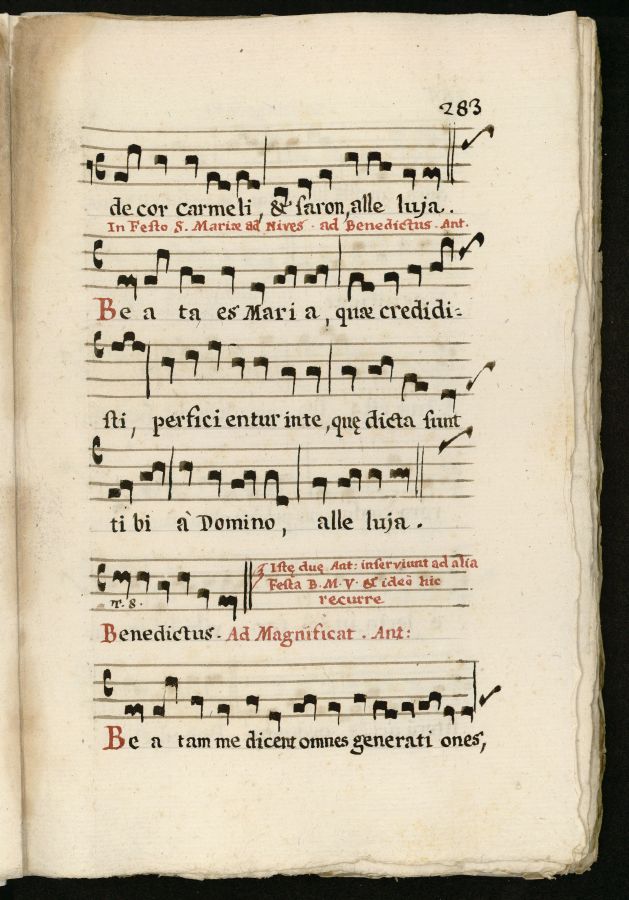 283
decor Carmeli, & saron, alle luja.
In Festo S. Mariæ ad Nives. ad Benedictus. Ant.
Be a ta es Mari a, quæ credidi=
sti, perfici entur in te, quę dicta sunt
ti bi à Domino, alle luja.
Istę duę Ant: inserviunt ad alia
Festa B. M. V. & ideò hic
recurre
Benedictus. Ad Magnificat. Ant:
Be a tam me dicent omnes generati ones,